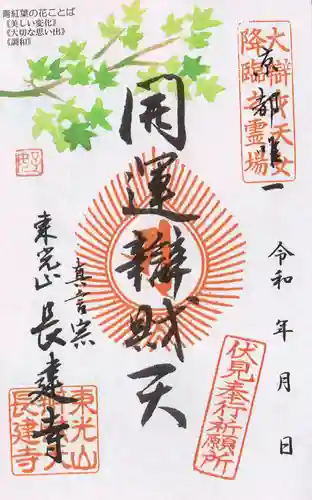 青紅葉の花ことば
《美しい変化》
《大切な思い出》
《調和》
大辯財天女
降臨之霊場
京都唯一
開運辯財天
令和 年 月 日
真言宗
東光山
長建寺
伏見奉行祈願所
東光山
長建寺